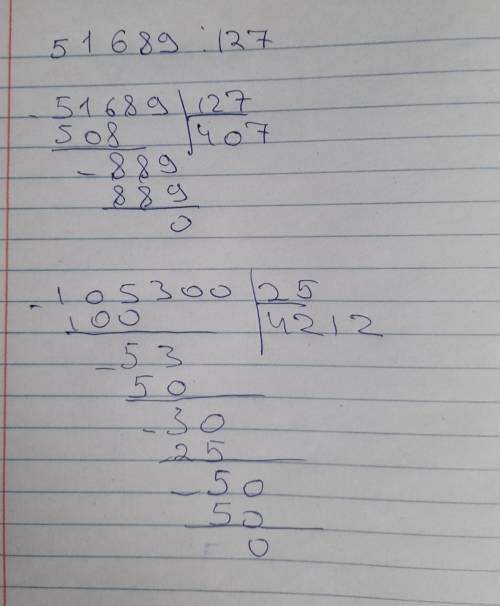 51689 : 127
- 51689 | 127
508 | 407
- 889
889
0
- 105300 | 25
100 | 4212
- 53
50
- 30
25
- 50
50
0